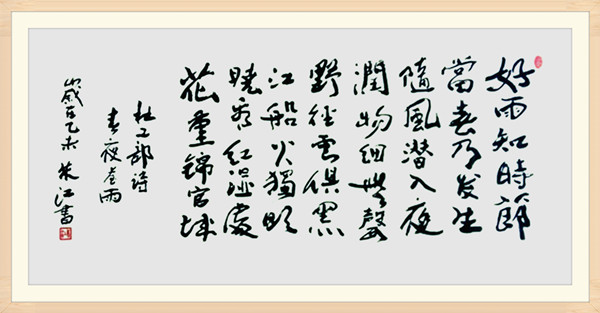 好雨知時節
當春乃发生
隨風潜入夜
潤物細無聲
野径雲俱黑
江船火獨明
曉看紅湿處
花重錦官城
杜工部詩
春夜喜雨
歲在乙未 江書